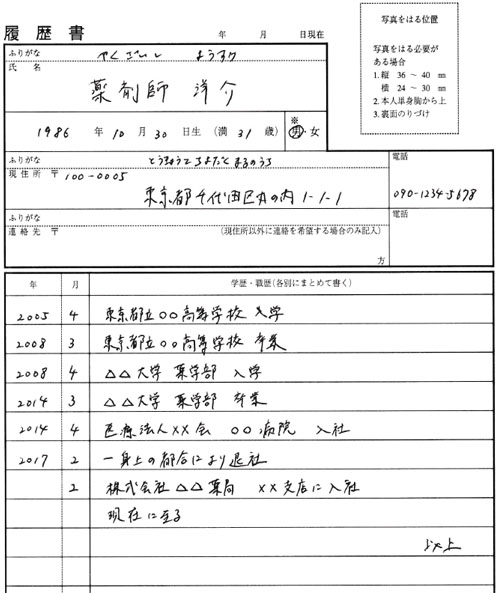 履歴書 年 月 日現在
写真をはる位置
写真をはる必要が
ある場合
1. 縦 36～40 ㎜
横 24～30 ㎜
2. 本人単身胸から上
3. 裏面のりづけ
ふりがな やくざいし ようすけ
氏名
薬剤師 洋介
1986 年 10 月 30 日生 (満 31 歳) ※ 男・女
ふりがな とうきょうとちよだくまるのうち
現住所 〒 100-0005
東京都千代田区丸の内 1-1-1
電話
090-1234-5678
ふりがな
連絡先 〒 (現住所以外に連絡を希望する場合のみ記入)
方
電話
年 月 学歴・職歴(各別にまとめて書く)
2005 4 東京都立○○高等学校 入学
2008 3 東京都立○○高等学校 卒業
2008 4 △△大学 薬学部 入学
2014 3 △△大学 薬学部 卒業
2014 4 医療法人××会 ○○病院 入社
2017 2 一身上の都合により退社
2 株式会社△△薬局 ××支店に入社
現在に至る
以上